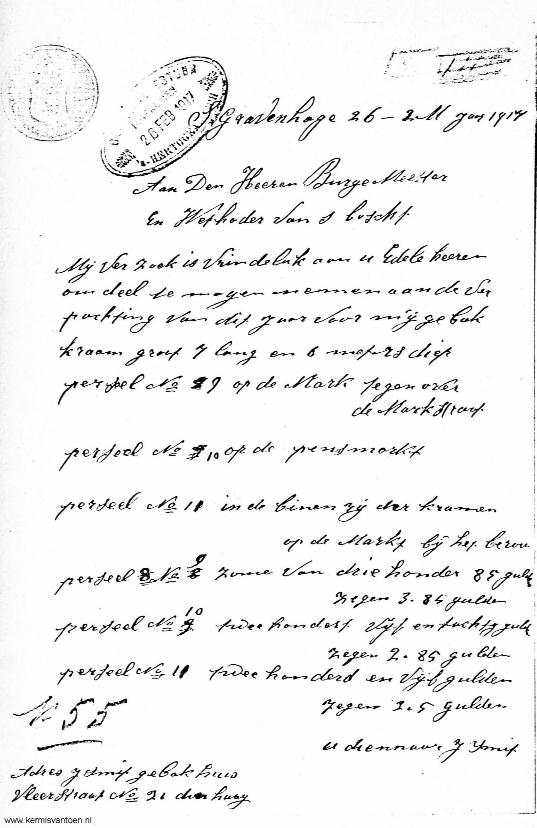 26 FEB 1917
s Gravenhage 26 - 2 M Jaar 1917
Aan Den Heeren BurgeMeester
En Wethoder van s bosch
Mij Ver zoek is Vrindelijk aan u Edele heeren
om deel te mogen nemen aan de Ver
pachting van dit jaar voor mij gebak
kraam groot 7 lang en 6 meters diep
perseel No 9 op de Mark tegen over
de Mark straat
perseel No 10 op de pensmarkt
perseel No 11 in de binen zij der kramen
op de Markt bij het
perseel No 9 zome van drie honder 85 guld
zegen 3.85 gulden
perseel No 10 twee hondert Vijf en tachtg guld
zegen 2.85 gulden
perseel No 11 twee honderd en Vijf gulden
zegen 2.5 gulden
No 55
u diennaar J Smit
Adres J Smit gebak huis
Vleer straat No 21 den haag
www.kermisvantoen.nl